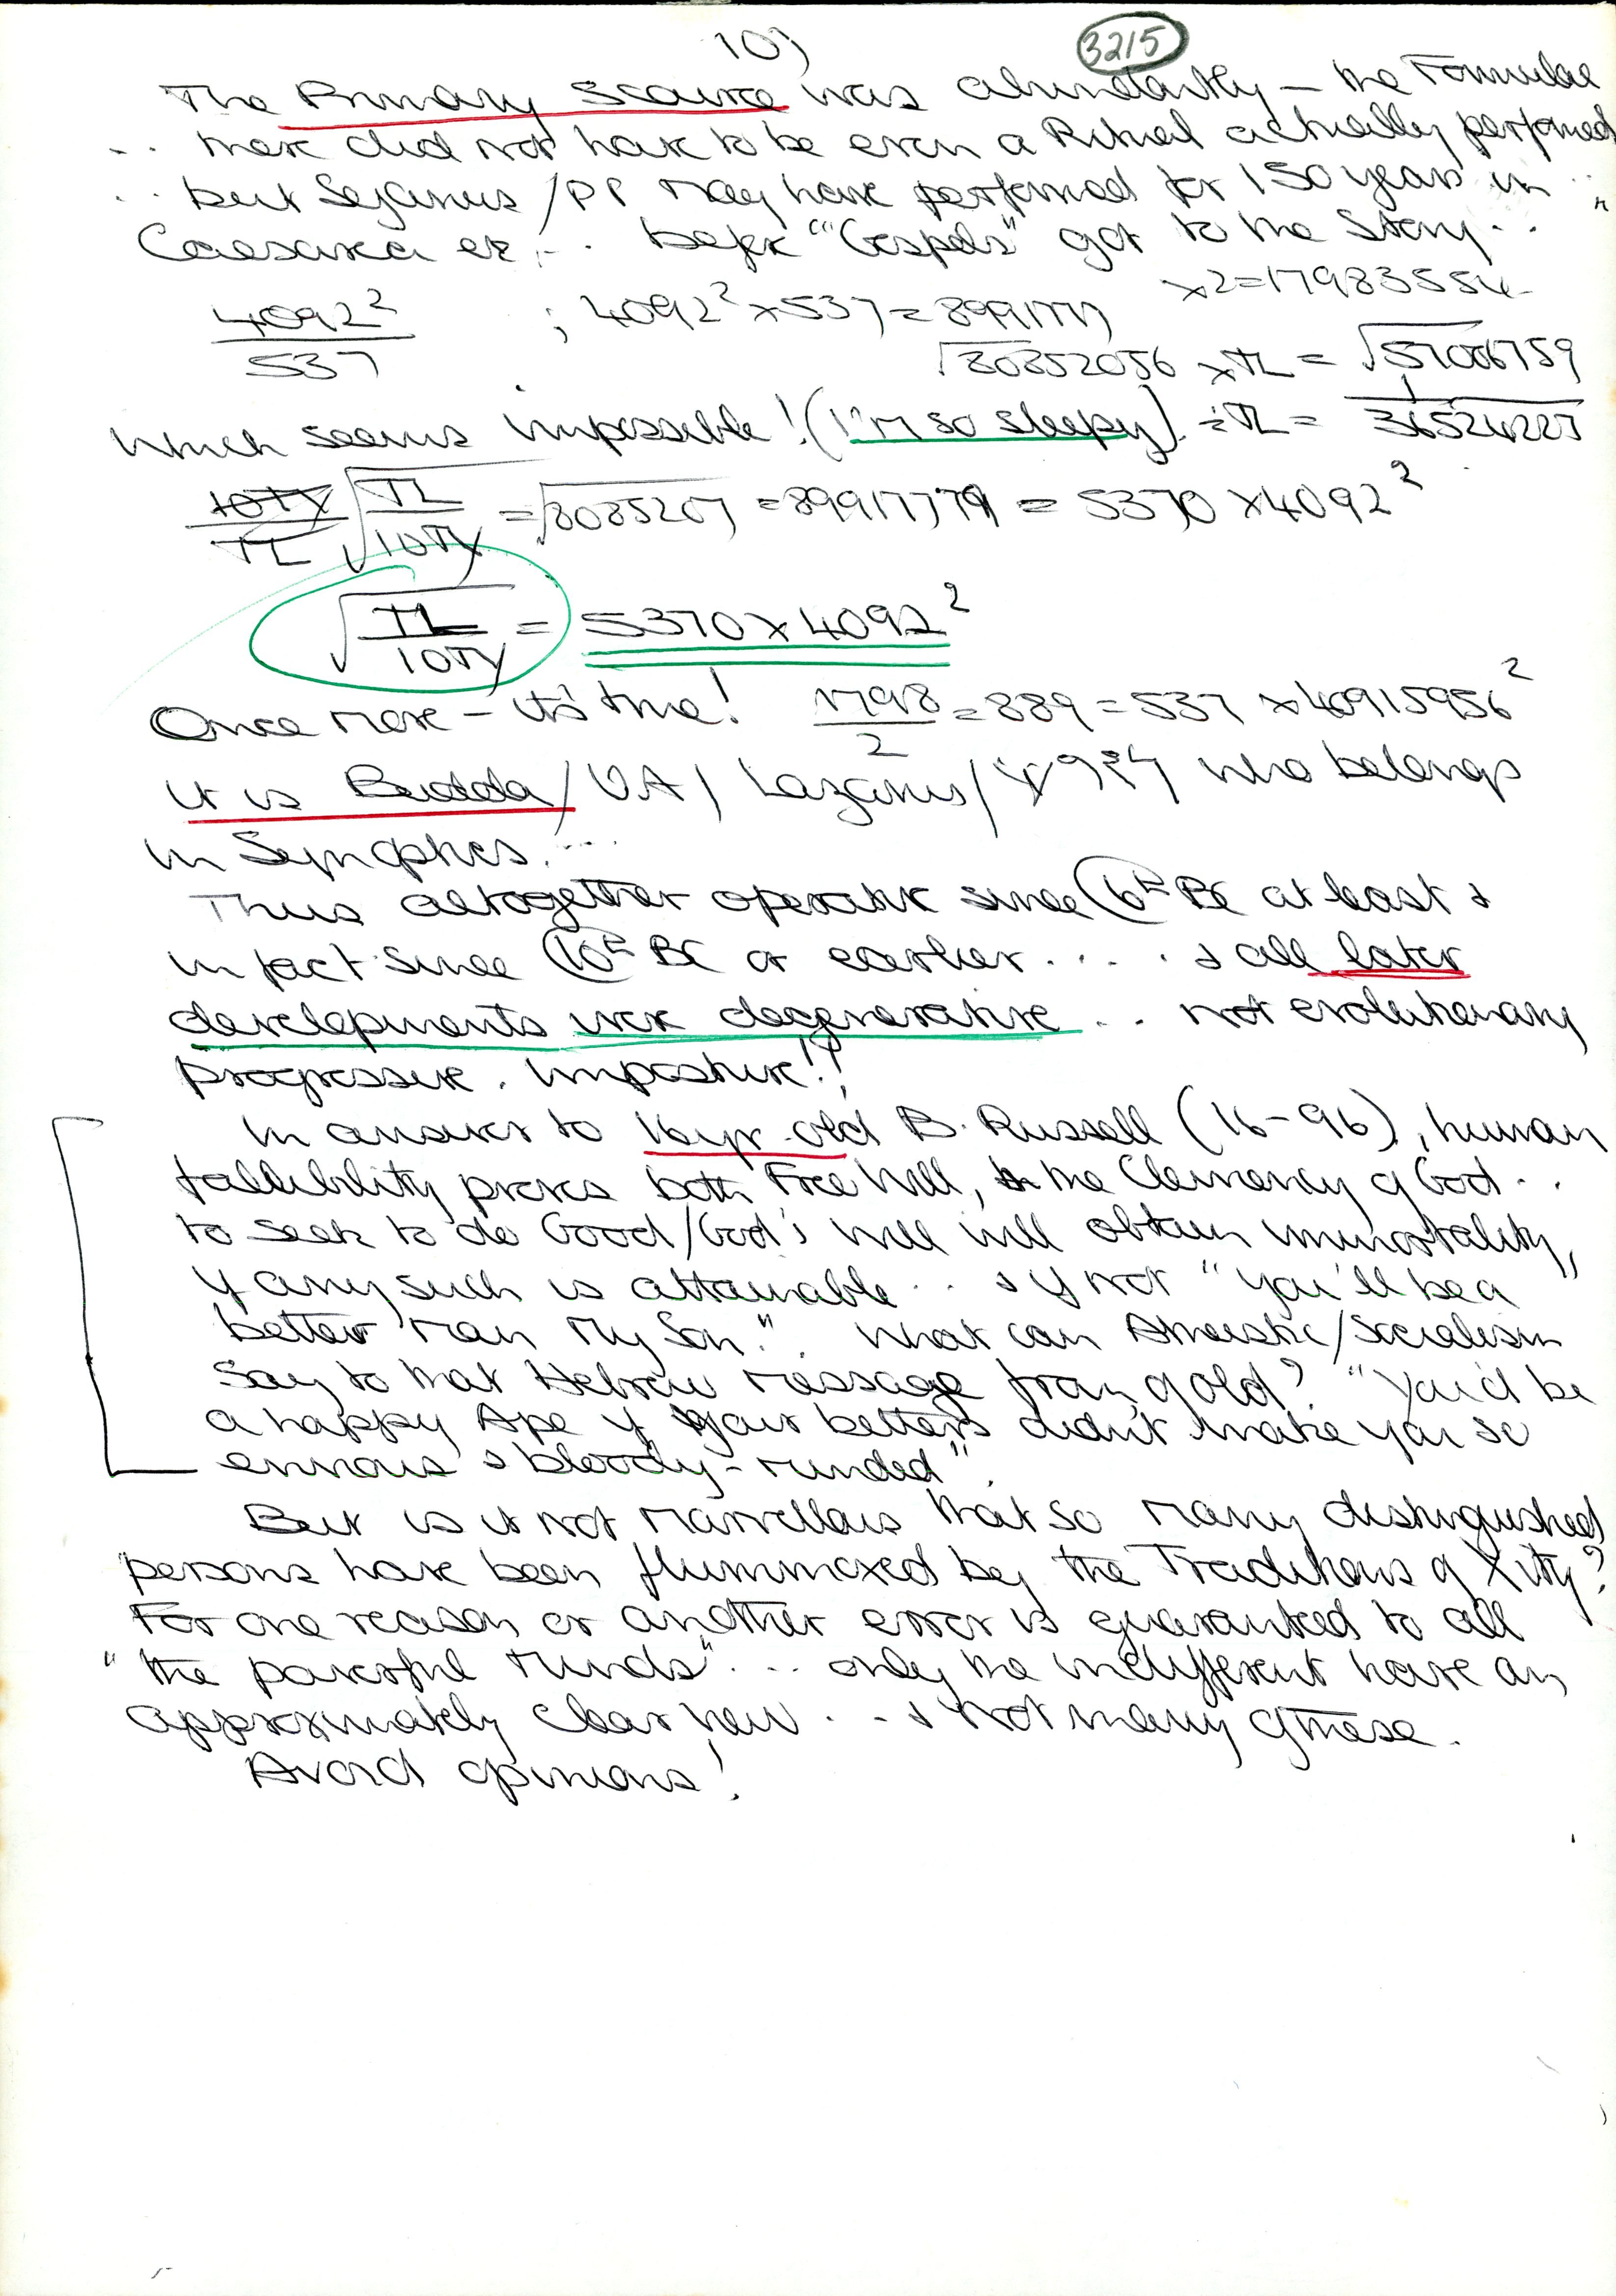 10)
3215
The Primary Source was abundantly – the Formulae
.. there did not have to be even a Ritual actually performed
.. but Sejanus / PP may have performed for 150 years in ..
Caesarea etc ... before "Gospels" got to the Story ..
4092² / 537 ; 4092² × 537 = 8991777 ×2 = 17983554
√80852056 × TL = √57006759
Which seems impossible! (I'm so sleepy). ÷ TL = 36524225
√TL/10Ty = √8085207 = 89917779 = 5370 × 4092²
√TL/10Ty = 5370 × 4092²
Once more – it's true! 1798/2 = 889 = 537 × 40915956²
It is Budda / UA / Lazarus / who belongs
in Synoptics. ...
Thus altogether operative since 6th BC at least &
in fact since 10th BC or earlier .... & all later
developments were degenerative .. not evolutionary
progressive. Imposture!!
In answer to 16yr-old B. Russell (16-96), human
fallibility proves both Free Will, & the Clemency of God ..
to seek to do Good/God's will will obtain immortality,
if any such is attainable ... & if not "you'll be a
better man My Son.". What can Atheistic/Socialism
say to that Hebrew message from of old? "You'd be
a happy Ape if your betters didn't make you so
envious & bloody-minded".
But is it not marvellous that so many distinguished
persons have been flummoxed by the Traditions of Xity?
For one reason or another error is guaranteed to all
"the powerful minds" ... only the indifferent have an
approximately clear view ... & not many of these.
Avoid opinions!